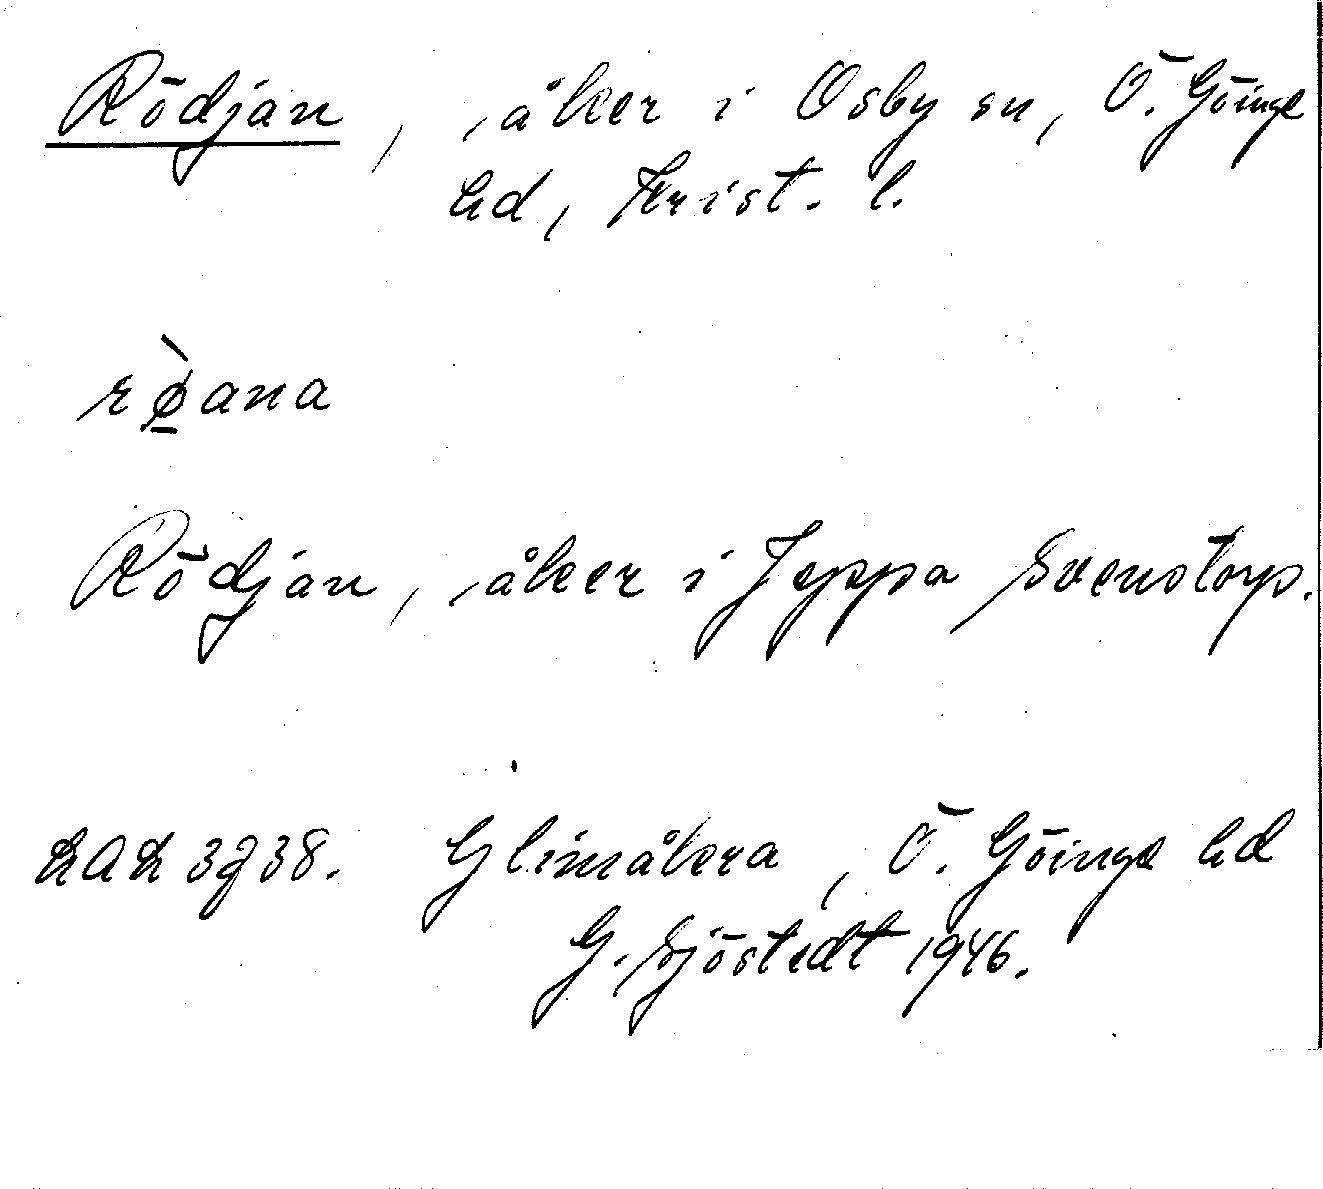 Rödjan, åker i Osby sn, Ö. Göinge
hd, Krist. l.
rø̱̀ana
Rödjan, åker i Jeppa Svenstorp.
LAL 3938. Glimåkra, Ö. Göinge hd
G. Sjöstedt 1946.